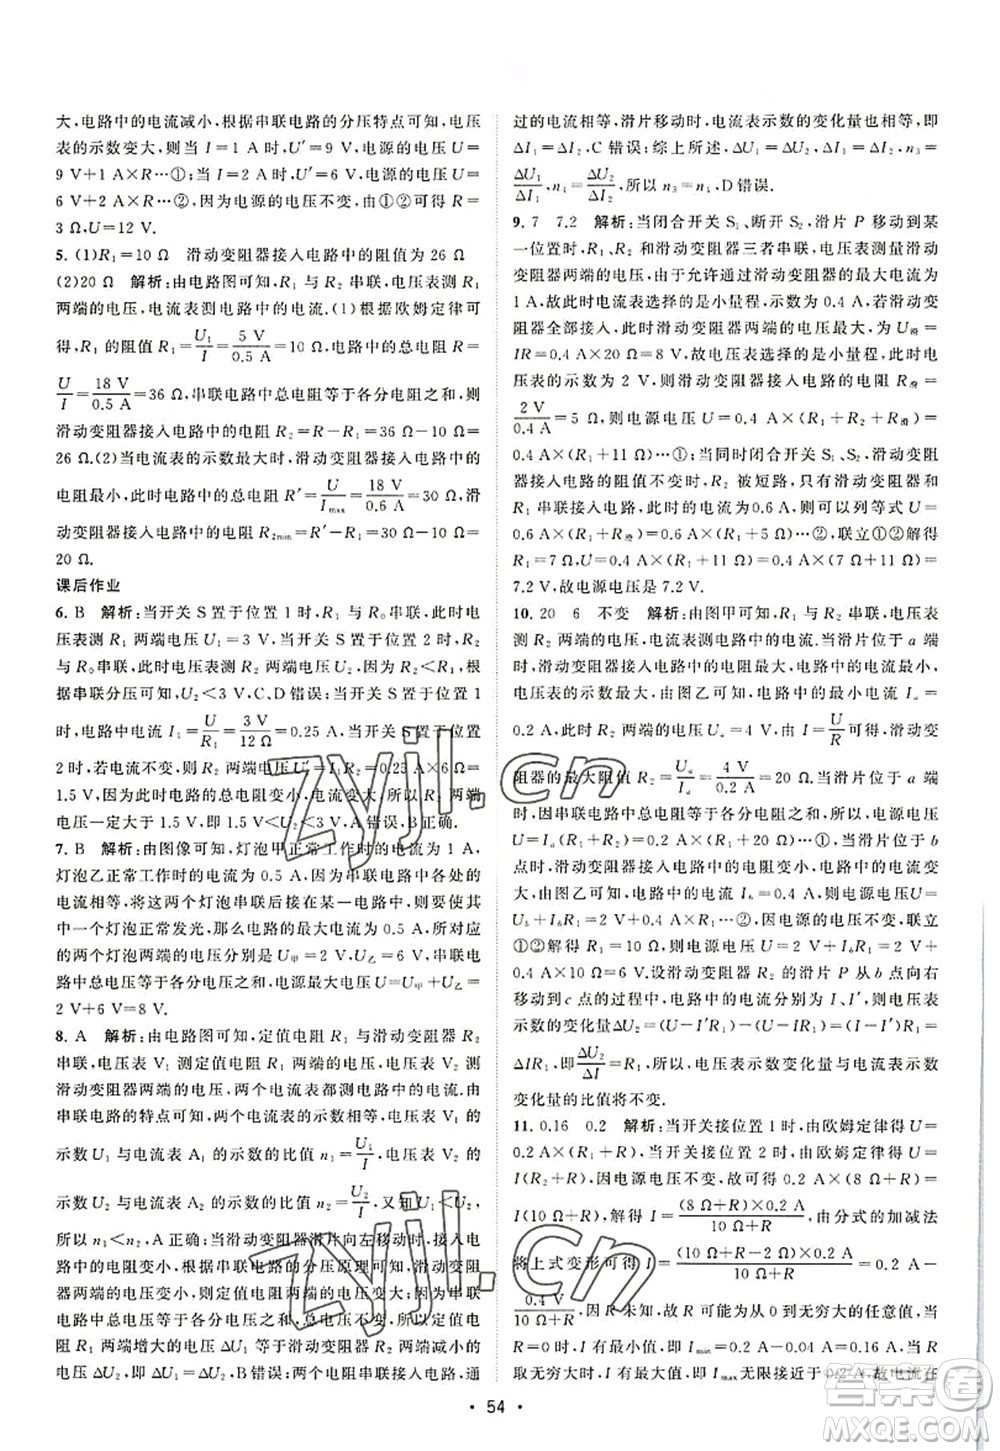 大,电路中的电流减小,根据串联电路的分压特点可知,电压
表的示数变大,当 I=1 A 时,U'=9 V,电源的电压 U=
9 V+1 A×R……①;当 I=2 A 时,U'=6 V,电源的电压 U=
6 V+2 A×R……②;电源的电压不变,联立①②可得,R=3 Ω,
U=12 V.
5. (1)R₁=10 Ω 滑动变阻器接入电路中的阻值为 26 Ω
(2)20 Ω 解析:由电路图可知,R₁ 与 R₂ 串联,电压表测 R₁
两端的电压,电流表测电路中的电流.(1)根据欧姆定律可
得,R₁ 的阻值 R₁=U₁/I=5 V/0.5 A=10 Ω,电路中的总电阻 R=
U/I=18 V/0.5 A=36 Ω,串联电路中总电阻等于各电阻之和,则
滑动变阻器接入电路中的电阻 R₂=R−R₁=36 Ω−10 Ω=
26 Ω.(2)当电流表的示数最大时,滑动变阻器接入电路中的
电阻最小,此时电路中的总电阻 R'=U/Imax=18 V/0.6 A=30 Ω,滑
动变阻器接入电路中的电阻 R2min=R'−R₁=30 Ω−10 Ω=
20 Ω.
课后作业
6. B 解析:当开关 S 置于位置 1 时,R₁ 与 R₀ 串联,此时电
压表测 R₁ 两端电压 U₁=3 V;当开关 S 置于位置 2 时,R₂
与 R₀ 串联,此时电压表测 R₂ 两端电压 U₂.因 R₂<R₁,
根据串联分压可知,U₂<3 V,C、D 错误;当开关 S 置于位置 1
时,电路中电流 I₁=U/R₁=3 V/12 Ω=0.25 A,当开关 S 置于位置
2 时,若电流不变,则 R₂ 两端电压 U₂'=I₁R₂=0.25 A×6 Ω=
1.5 V,但此时电路的总电阻变小,电流变大,则 R₂ 两端
电压一定大于 1.5 V,即 1.5 V<U₂<3 V,A 错误,B 正确.
7. B 解析:由图像可知,灯泡甲正常工作时的电流为 1 A,
灯泡乙正常工作时的电流为 0.5 A,因为串联电路中各处的
电流相等,将这两个灯泡串联后接在某一电源上,要使其
中一个灯泡正常发光,那么电路的最大电流为 0.5 A,所对应
的两个灯泡两端的电压分别是 U甲=2 V、U乙=6 V,串联电
路两端的总电压等于各部分电压之和,即 U=U甲+U乙=
2 V+6 V=8 V.
8. A 解析:由电路图可知,定值电阻 R₁ 与滑动变阻器 R₂
串联,电压表 V₁ 测定值电阻 R₁ 两端的电压,电压表 V₂ 测
滑动变阻器两端的电压,两个电流表都测电路中的电流.由
串联电路的特点可知,两个电流表的示数相等,电压表 V₁ 的
示数 U₁ 与电流表 A₁ 的示数的比值 n₁=U₁/I,电压表 V₂ 的
示数 U₂ 与电流表 A₂ 的示数的比值 n₂=U₂/I,又知 U₁<U₂,
所以 n₁<n₂,A 正确;当滑动变阻器滑片向左移动时,串联电
路中的电阻变小,由串联电路的分压原理可知,滑动变阻器两
端电压变小,定值电阻两端的电压变大,由于电源电压不变,
所以 R₁ 两端电压增大的电压 ΔU₁ 等于滑动变阻器减小的
电压 ΔU₂,即 ΔU₁=ΔU₂,B 错误;因两个电流表串联接入电路,通
过的电流相等,滑片移动时,电流表示数的变化量也相等,即
ΔI₁=ΔI₂,C 错误;综上所述,ΔU₁=ΔU₂,ΔI₁=ΔI₂,n₃=
ΔU₁/ΔI₁,n₄=ΔU₂/ΔI₂,所以 n₃=n₄,D 错误.
9. 7 7.2 解析:当闭合开关 S₁、断开 S₂,滑片 P 移动到某
一位置时,R₁、R₂ 和滑动变阻器三者串联,电压表测量滑动
变阻器两端的电压,由于允许通过滑动变阻器的最大电流为
1 A,故此时电流表选择的是小量程,示数为 0.4 A,若滑动变
阻器全部接入,则滑动变阻器两端的电压最大,为 U滑=
IR=0.4 A×20 Ω=8 V,故电压表选择的是小量程,此时电
压表的示数为 2 V,则滑动变阻器接入电路的电阻 R滑=
2 V/0.4 A=5 Ω,则电源电压 U=0.4 A×(R₁+R₂+R滑)=
0.4 A×(R₁+11 Ω)……①;当同时闭合开关 S₁、S₂,滑动变
阻器的阻值不变时,R₂ 被短路,只有滑动变阻器和 R₁ 串
联,由于此时的电流为 0.6 A,则可以列等式 U=
0.6 A×(R₁+R滑)=0.6 A×(R₁+5 Ω)……②,联立①②解得
R₁=7 Ω,故电源电压 U=0.4 A×(R₁+11 Ω)=
7.2 V,故电源电压为 7.2 V.
10. 20 6 不变 解析:由图甲可知,R₁ 与 R₂ 串联,电压表
测 R₂ 两端的电压,电流表测电路中的电流.当滑片位于 a 端
时,滑动变阻器接入电路中的电阻最大,电路中的电流最小,
电压表的示数最大,由图乙可知,电路中的最小电流 Iₐ=
0.2 A,R₂ 两端的电压 Uₐ=4 V,由 I=U/R可得,滑动变
阻器的最大阻值 R₂=Uₐ/Iₐ=4 V/0.2 A=20 Ω.当滑片位于 a 端
时,根据串联电路中总电阻等于各电阻之和,电源电压
U=Iₐ(R₁+R₂)=0.2 A×(R₁+20 Ω)……①;当滑片位于 b
点时,滑动变阻器接入电路中的电阻变小,电路中的电流变大,
由图乙可知,电路中的电流 I_b=0.5 A,则电源电压 U=
U_b+I_bR₁=1 V+0.5 A×R₁……②,因为电源的电压不变,联立
①②解得 R₁=10 Ω,电源电压 U=U_b+I_bR₁=1 V+
0.5 A×10 Ω=6 V.设滑动变阻器 R₂ 的滑片 P 从 b 点向右
移动到 c 点时,电路中的电流分别为 I、I',可得电压表
示数的变化量 ΔU₂=(U−I'R₁)−(U−IR₁)=(I−I')R₁=
ΔIR₁,即ΔU₂/ΔI=R₁,故电压表示数变化量与电流表示数
变化量的比值将不变.
11. 0.16 0.2 解析:当开关接位置 1 时,由欧姆定律得 U=
0.2 A×(R₁+R)=0.2 A×(8 Ω+R),当开关接位置 2 时,U=
I(R₂+R)=I(10 Ω+R),因电源电压不变,故可得 0.2 A×(8 Ω+R)=
I(10 Ω+R),解得 I=(8 Ω+R)×0.2 A/10 Ω+R,由分式的加减法
将上式变形可得 I=(10 Ω+R−2 Ω)×0.2 A/10 Ω+R=0.2 A−
0.4 V/10 Ω+R,因 R 未知,故 R 可能为从 0 到无穷大的任意值,当
R=0 时,I 有最小值,故 Imin=0.2 A−0.04 A=0.16 A;当 R
取无穷大时,I 有最大值,Imax无限接近于 0.2 A,故电流在
• 54 •
zyjl.cn
zyjl.cn
答案圈
MXQE.COM